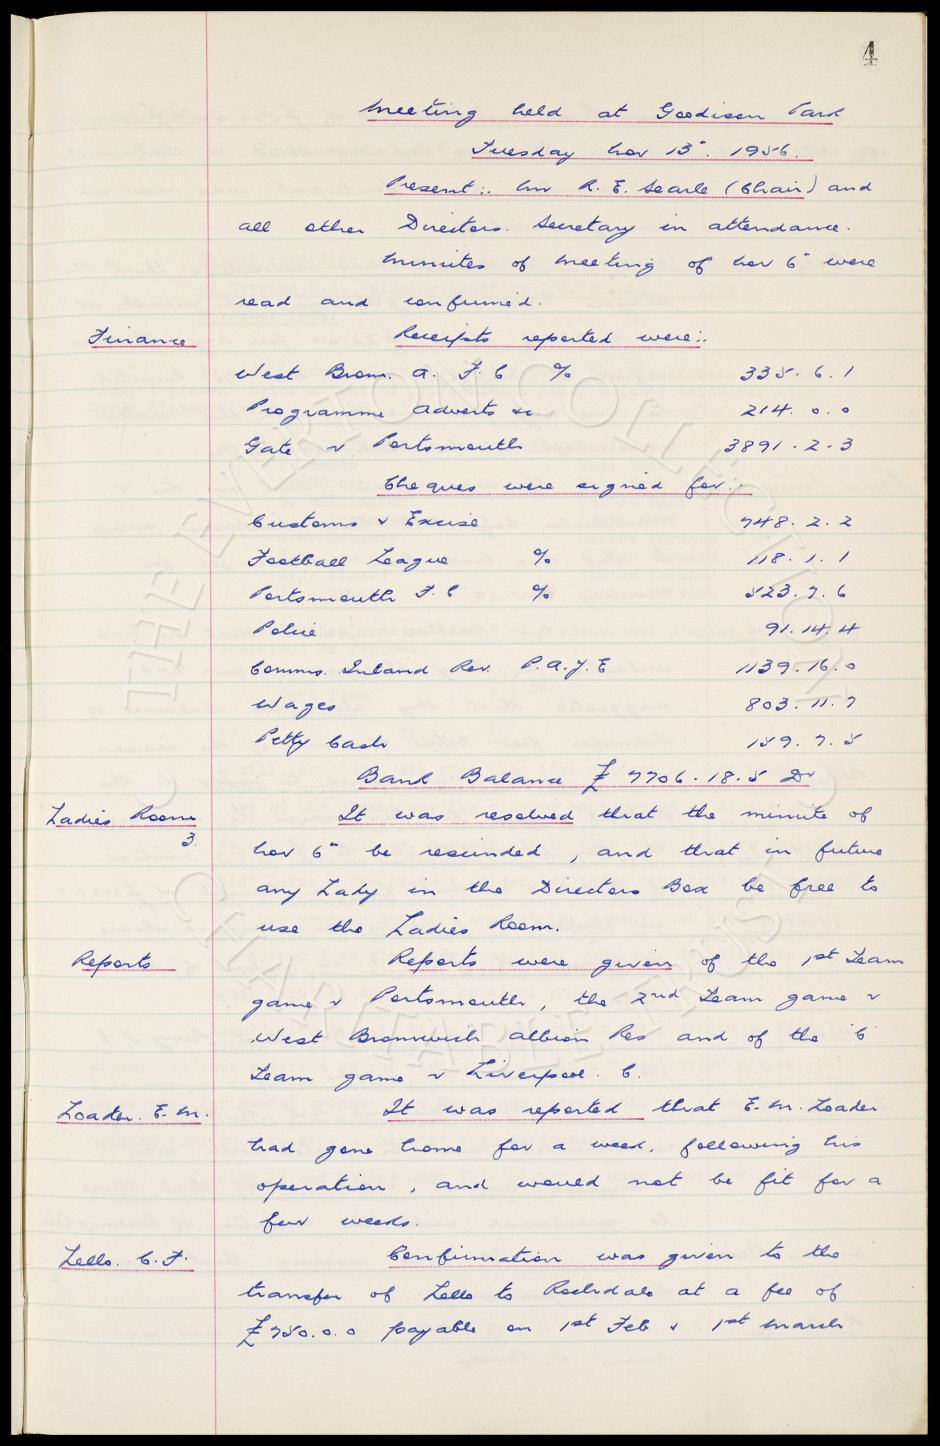 4
Meeting held at Goodison Park
Tuesday Nov 13th. 1956.
Present:. Mr R. E. Searle (Chair) and
all other Directors. Secretary in attendance.
Minutes of Meeting of Nov 6th were
read and confirmed.
Finance Receipts reported were:.
West Brom. A. F. C % 335. 6. 1
Programme Adverts &c 214. 0. 0
Gate v Portsmouth 3891. 2. 3
Cheques were signed for:.
Customs & Excise 748. 2. 2
Football League % 118. 1. 1
Portsmouth F. C % 523. 7. 6
Police 91. 14. 4
Comms. Inland Rev. P. A. Y. E 1139. 16. 0
Wages 803. 11. 7
Petty Cash 159. 7. 5
Bank Balance £ 7706. 18. 5 Dr
Ladies Room It was resolved that the minute of
3. Nov 6th be rescinded, and that in future
any Lady in the Directors Box be free to
use the Ladies Room.
Reports Reports were given of the 1st Team
game v Portsmouth, the 2nd Team game v
West Bromwich Albion Res and of the 'C
Team game v Liverpool. C.
Loader. E. M. It was reported that E. M. Loader
had gone home for a week, following his
operation, and would not be fit for a
few weeks.
Lello. C. F. Confirmation was given to the
transfer of Lello to Rochdale at a fee of
£750. 0. 0 payable on 1st Feb & 1st March
THE EVERTON COLLECTION
CHARITABLE TRUST